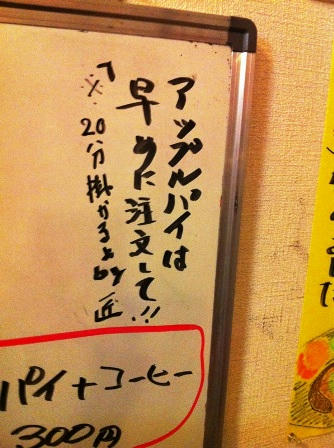 アップルパイは
早めに注文して!!
※20分掛かるよ by 匠
パイ+コーヒー
300円